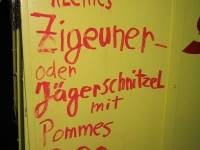 kleines
Zigeuner-
oder
Jägerschnitzel
mit
Pommes